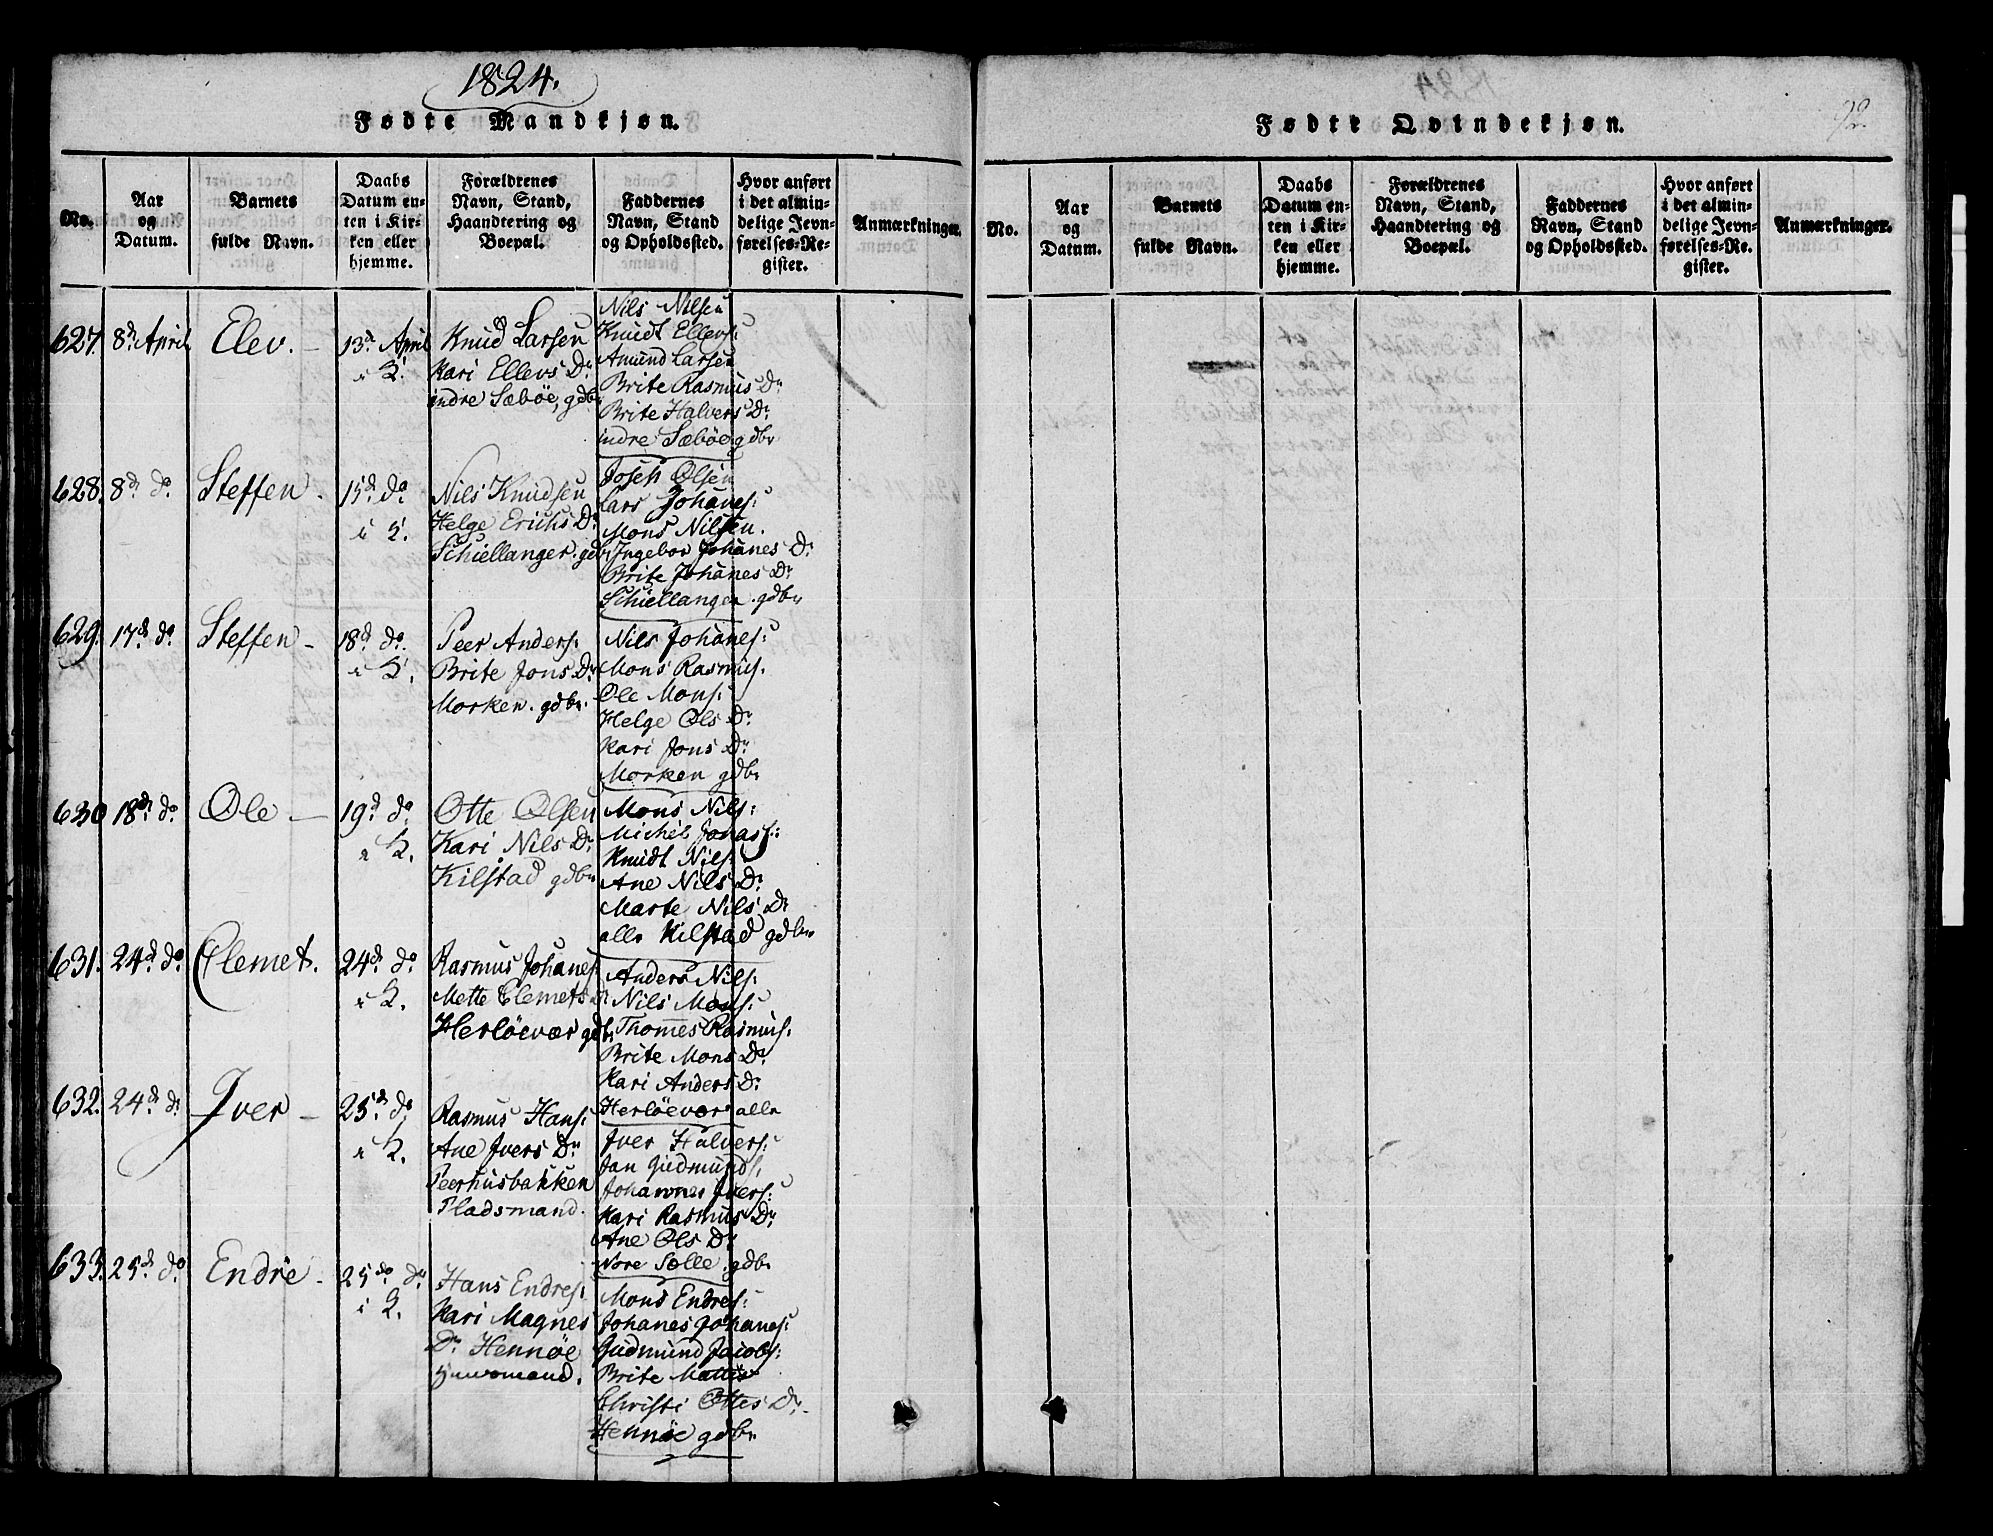 1824.
Fødte Mandkjøn.
No.
Aar
og
Datum.
Barnets
fulde Navn.
Daabs
Datum en-
ten i Kir-
ken eller
hjemme.
Forældrenes
Navn, Stand,
Haandtering og
Boepæl.
Faddernes
Navn, Stand
og Opholdssted.
Hvor anført
i det almin-
delige Jevn-
førelses-Re-
gister.
Anmærkninger.
627. 8de April
Elev.
13de April
i K.
Knud Larsen
Kari Ellevs Dr
indre Sæbøe, gdbr
Nils Nilsen
Knudt Ellevs:
Amund Larsen
Brite Rasmus Dr
Brite Halvers Dr
indre Sæbøe gdbr
628. 8de do
Steffen.
15de do
i K.
Nils Knudsen
Helge Erichs Dr
Schiellanger. gdbr
Joseh Olsen
Lars Johanes:
Mons Nilsen.
Ingebor Johanes Dr
Brite Johanes Dr
Schiellanger. gdbr
629. 17de do
Steffen
18de do
i K.
Peer Anders:
Brite Jons Dr
Morken. gdbr.
Nils Johanes:
Mons Rasmus.
Ole Mons:
Helge Ols Dr
Kari Jons Dr
Morken gdbr
630 18de do
Ole
19de do
i K.
Otte Olsen
Kari Nils Dr
Kilstad gdbr
Mons Nils:
Michel Jonas:
Knudt Nils:
Ane Nils Dr
Marte Nils Dr
alle Kilstad gdbr
631. 24de do
Clemet.
24de do
i K.
Rasmus Johanes:
Mette Clemets Dr
Herløevær gdbr
Anders Nils:
Nils Mons:
Thommes Rasmus:
Brite Mons Dr
Kari Anders Dr
Herløevær alle
632. 24de do
Iver
25de do
i K.
Rasmus Hans:
Ane Ivers Dr
Peerhusbakken
Pladsmand.
Iver Halvers:
Jan Gudmunds,
Johannes Ivers:
Kari Rasmus Dr
Ane Ols Dr
Nore Sælle. gdbr
633. 25de do
Endre
25de do
i K.
Hans Endres:
Kari Magnes
Dr Hennøe
Huusmand.
Mons Endres:
Johanes Johanes:
Gudmund Jacobs:
Brite Mattis
Christi Ottes Dr
Hennøe gdbr
92.
Fødte Qvindekjøn.
No.
Aar
og
Datum.
Barnets
fulde Navn.
Daabs
Datum en-
ten i Kir-
ken eller
hjemme.
Forældrenes
Navn, Stand,
Haandtering og
Boepæl.
Faddernes
Navn, Stand
og Opholdssted.
Hvor anført
i det almin-
delige Jevn-
førelses-Re-
gister.
Anmærkninger.